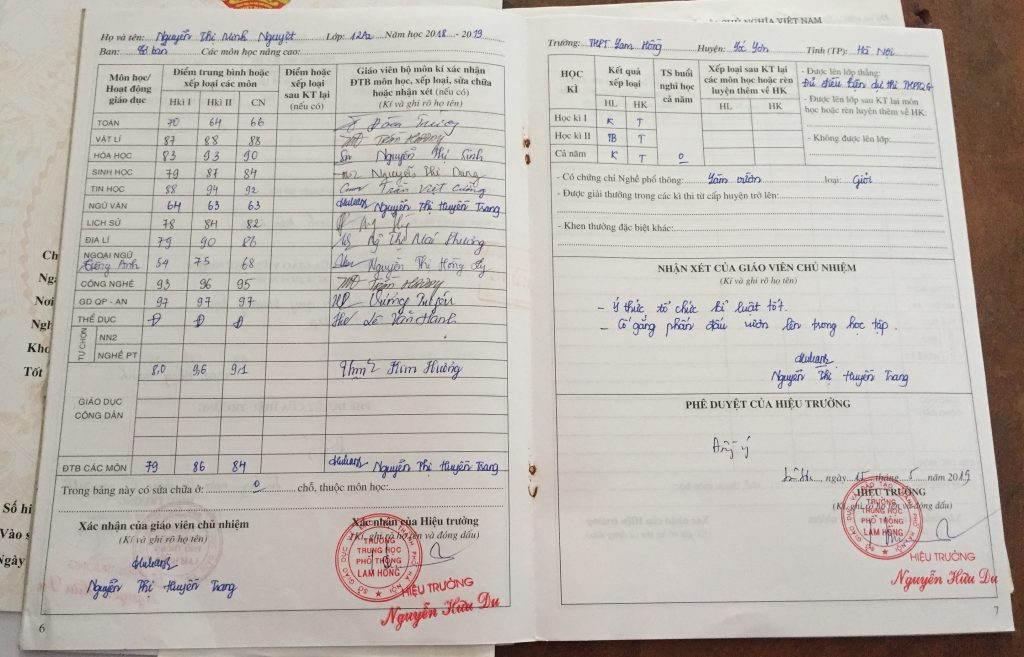 Họ và tên: Nguyễn Thị Minh Nguyệt Lớp: 12A2 Năm học 2018 - 2019
Ban: Cơ bản Các môn học nâng cao:
Môn học/ Hoạt động giáo dục
Điểm trung bình hoặc xếp loại các môn
Hkì I Hkì II CN
Điểm hoặc xếp loại sau KT lại (nếu có)
Giáo viên bộ môn kí xác nhận ĐTB môn học, xếp loại, sửa chữa hoặc nhận xét (nếu có)
(Kí và ghi rõ họ tên)
TOÁN 70 64 66
VẬT LÍ 87 88 88 Trần Hương
HÓA HỌC 83 93 90 Nguyễn Thị Sinh
SINH HỌC 79 87 84 Nguyễn Thị Dung
TIN HỌC 88 94 92 Trần Việt Cường
NGỮ VĂN 64 63 63 Nguyễn Thị Huyền Trang
LỊCH SỬ 78 84 82
ĐỊA LÍ 79 90 86 Ng Thị Mai Phương
NGOẠI NGỮ Tiếng Anh 54 75 68 Nguyễn Thị Hồng
CÔNG NGHỆ 93 96 95 Trần Hương
GD QP - AN 97 97 97
THỂ DỤC Đ Đ Đ Lê Văn Hanh
TỰ CHỌN
NN2
NGHỀ PT
GIÁO DỤC CÔNG DÂN 8,0 9,6 9,1 Kim Hường
ĐTB CÁC MÔN 79 86 84 Nguyễn Thị Huyền Trang
Trong bảng này có sửa chữa ở: 0 chỗ, thuộc môn học:
Xác nhận của giáo viên chủ nhiệm
(Kí và ghi rõ họ tên)
Nguyễn Thị Huyền Trang
Xác nhận của Hiệu trưởng
(Kí, ghi rõ họ tên và đóng dấu)
TRƯỜNG
TRUNG HỌC
PHỔ THÔNG
LAM HỒNG
HIỆU TRƯỞNG
Nguyễn Hữu Du
6
CHỦ NGHĨA VIỆT NAM
Trường: THPT Lam Hồng Huyện: Sóc Sơn Tỉnh (TP): Hà Nội
HỌC KÌ
Kết quả xếp loại
HL HK
TS buổi nghỉ học cả năm
Xếp loại sau KT lại các môn học hoặc rèn luyện thêm về HK
HL HK
Học kì I K T
Học kì II TB T
Cả năm K T 0
- Được lên lớp thẳng:
Đủ điều kiện dự thi THPTQG
- Được lên lớp sau KT lại môn học hoặc rèn luyện thêm về HK:
- Không được lên lớp:
- Có chứng chỉ Nghề phổ thông: Làm vườn loại: Giỏi
- Được giải thưởng trong các kì thi từ cấp huyện trở lên:
- Khen thưởng đặc biệt khác:
NHẬN XÉT CỦA GIÁO VIÊN CHỦ NHIỆM
(Kí và ghi rõ họ tên)
- Ý thức tổ chức kỉ luật tốt.
- Cố gắng phấn đấu vươn lên trong học tập.
Nguyễn Thị Huyền Trang
PHÊ DUYỆT CỦA HIỆU TRƯỞNG
Đồng ý
ngày 15 tháng 5 năm 2019
HIỆU TRƯỞNG
(Kí, ghi rõ họ tên và đóng dấu)
TRƯỜNG
TRUNG HỌC
PHỔ THÔNG
LAM HỒNG
HIỆU TRƯỞNG
Nguyễn Hữu Du
7